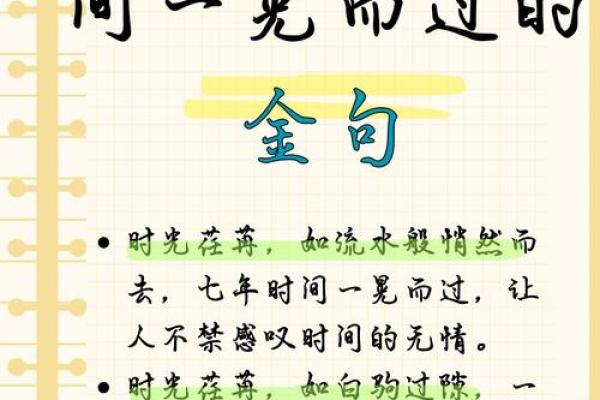 间一晃而过的
金句
时光荏苒，如流水般悄然而
去，七年时间一晃而过，让
人不禁感叹时间的无情。
时光荏苒，如白驹过隙，一